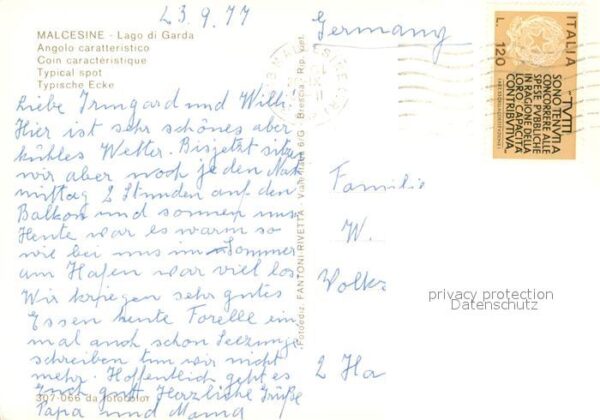 23.9.77
MALCESINE - Lago di Garda
Angolo caratteristico
Coin caractéristique
Typical spot
Typische Ecke
Liebe Irmgard und Willi!
Hier ist sehr schönes aber
kühles Wetter. Bisjetzt sitzen
wir aber noch jeden Nach
mittag 2 Stunden auf den
Balkon und sonnen uns.
Heute war es warm so
wie bei uns im Sommer
am Hafen war viel los
Wir kriegen sehr gutes
Essen heute Forelle ein
mal auch schon Seezunge
schreiben tun wir nicht
mehr. Hoffentlich geht es
Euch gut Herzliche Grüße
Papa und Mama
307-066 da fotocolor
Fotoediz. FANTONI RIVETTA - Brescia - Rip. viet.
Germany
MALCESINE
ITALIA
L. 120
TUTTI
SONO TENUTI A
CONCORRERE ALLE
SPESE PUBBLICHE
IN RAGIONE DELLA
LORO CAPACITÀ
CONTRIBUTIVA
Familie
W.
Volke
2 Ha
privacy protection
Datenschutz